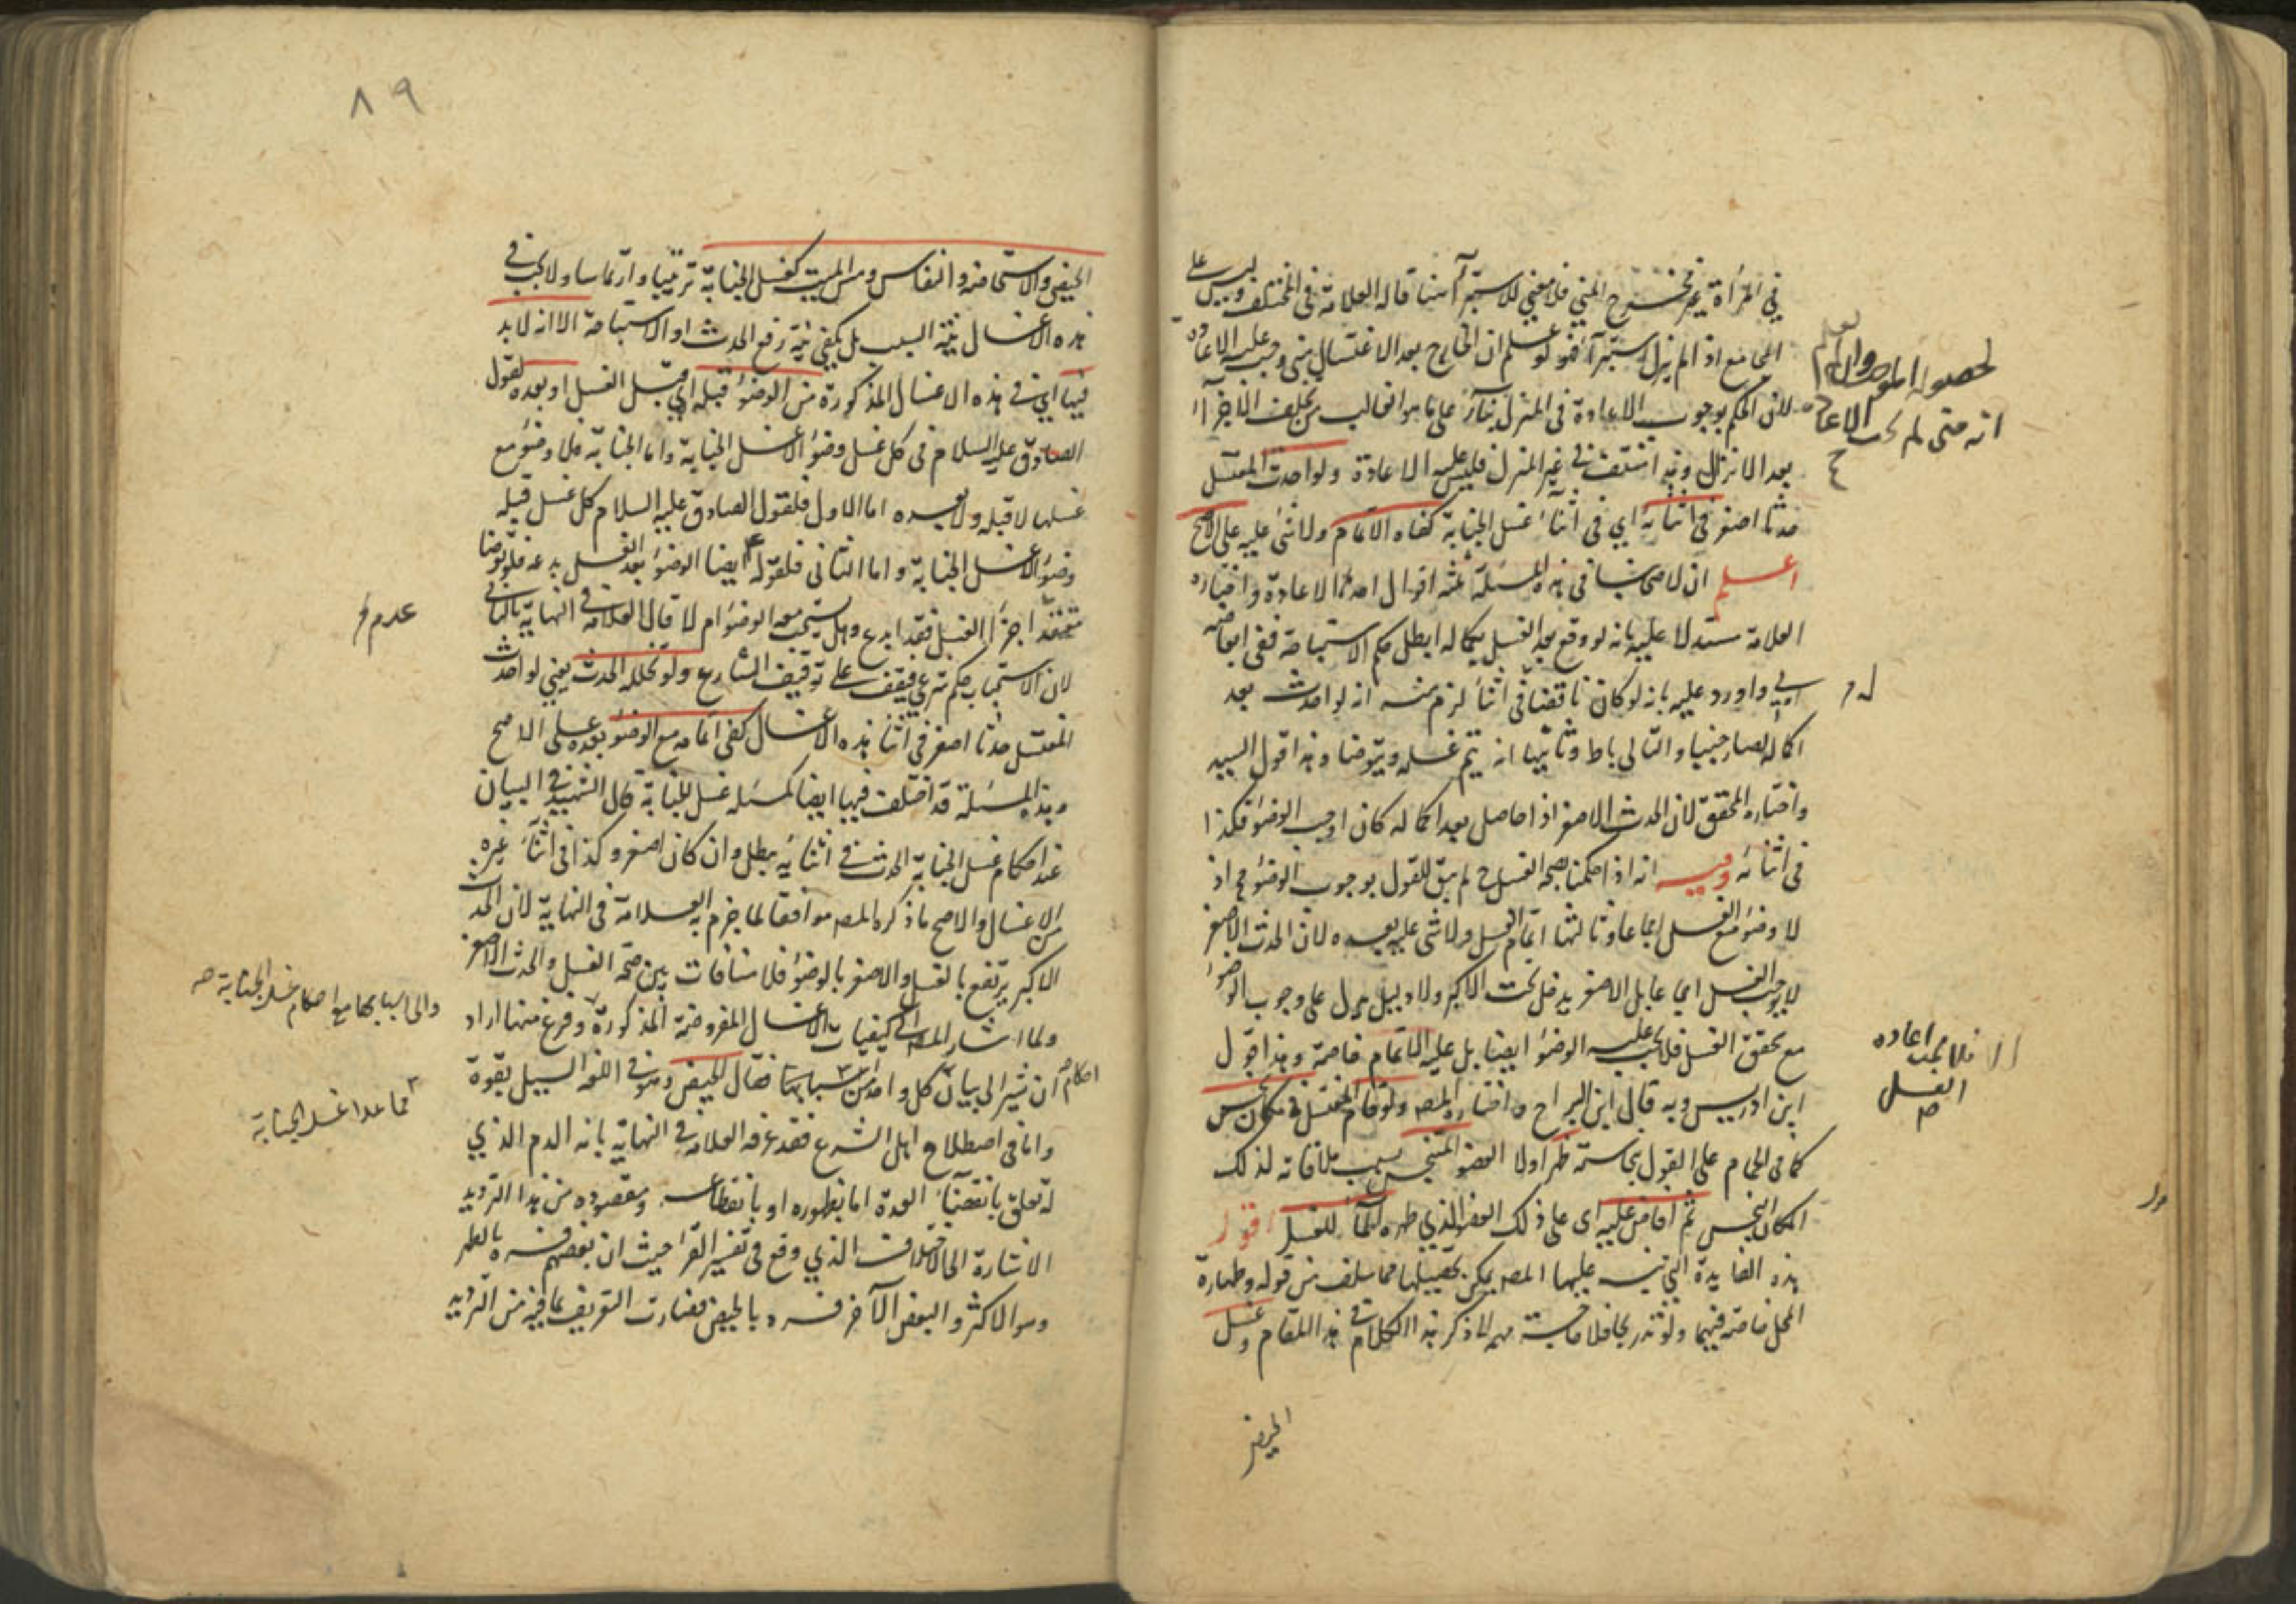 في المرأة يخرج المني فلا معنى للاستبراء هنا قاله العلامة في المختلف وليس على
المجامع اذا لم ينزل استبراء فلو علم ان الخارج بعد الاغتسال مني وجب عليه الاعادة
لان الحكم بوجوب الاعادة في المنزل بناء على ما هو الغالب من تخلف الاجزاء
بعد الانزال وقد انتفت في غير المنزل فليس عليه الاعادة ولو احدث المغتسل
حدثا اصغر في اثنائه اي في اثناء غسل الجنابة كفاه الاتمام ولا شئ عليه على الاصح
اعلم ان لاصحابنا في هذه المسئلة ثلثة اقوال احدها الاعادة واختاره
العلامة مستدلا عليه بانه لو وقع بعد الغسل بكماله ابطل حكم الاستباحة ففي ابعاضه
اولى واورد عليه بانه لو كان ناقضا في اثنائه لزم منه انه لو احدث بعد
اكماله لصار جنبيا والتالي باطل وثانيها انه يتم غسله ويتوضا وهذا قول السيد
واختاره المحقق لان الحدث الاصغر اذا حصل بعد اكماله كان اوجب الوضوء فكذا
في اثنائه وفيه انه اذا حكمنا بصحة الغسل ح لم يبق للقول بوجوب الوضوء وجه اذ
لا وضوء مع الغسل اجماعا وثالثها اتمام الغسل ولا شئ عليه بعده لان الحدث الاصغر
لا يوجب الغسل اجماعا بل الاصغر يدخل تحت الاكبر ولا دليل يدل على وجوب الوضوء
مع تحقق الغسل فلا يجب عليه الوضوء ايضا بل عليه الاتمام خاصة وهذا قول
ابن ادريس وبه قال ابن البراج واختاره المصـ ولو قام المغتسل في مكان نجس
كما في الحمام على القول بنجاسته طهر اولا العضو المتنجس بسبب ملاقاته لذلك
المكان النجس ثم افاض عليه اى على ذلك العضو الذي طهره الماء للغسل اقول
هذه الفايدة التي نبه عليها المصـ يمكن تحصيلها مما سلف من قوله وطهارة
المحل خاصة فيهما ذكر هذا الكلام في هذا المقام وغسل
الحيض
لحصوله
انه متى لم تجب الاعادة
فلا يجب اعادة
الغسل
٨٩
الحيض والاستحاضة والنفاس ومس الميت كغسل الجنابة ترتيبا وارتماسا ولا يجب في
هذه الاغسال نية السبب بل يكفي نية رفع الحدث او الاستباحة الا انه لا بد
فيها اي في هذه الاغسال المذكورة من الوضوء قبله اي قبل الغسل او بعده لقول
الصادق عليه السلام في كل غسل وضوء الا غسل الجنابة واما الجنابة فلا وضوء مع
غسلها لا قبله ولا بعده اما الاول فلقول الصادق عليه السلام كل غسل قبله
وضوء الا غسل الجنابة واما الثاني فلقوله ايضا الوضوء بعد الغسل بدعة فلو توضا
معتقدا اجزاء الغسل فقد ابدع وهل يستحب معه الوضوء ام لا قال العلامة في النهاية بالثاني
لان الاستحباب حكم شرعي فيقف على توقيف الشارع ولو تخلله الحدث يعني لو احدث
المغتسل حدثا اصغر في اثناء هذه الاغسال كفى اتمامه مع الوضوء بعده على الاصح
وهذه المسئلة قد اختلف فيها ايضا كمسئله غسل الجنابة قال الشهيد في البيان
عند احكام غسل الجنابة الحدث في اثنائه يبطل وان كان اصغر وكذا في اثناء غيره
من الاغسال والاصح ما ذكره المصـ موافقا لما جزم به العلامة في النهاية لان الحدث
الاكبر يرتفع بالغسل والاصغر بالوضوء فلا منافات بين صحة الغسل والحدث الاصغر
ولما اشار المصـ الى كيفيات الاغسال المفروضة المذكورة وفرغ منها اراد
ان يشير الى بيان كل واحد من اسبابها فقال الحيض وهو في اللغة السيل بقوة
واما في اصطلاح اهل الشرع فقد عرفه العلامة في النهاية بانه الدم الذي
له تعلق بانقضاء العدة اما بظهوره او بانقطاعه ومقصوده من هذا الترديد
الاشارة الى الاختلاف الذي وقع في تفسير القرء حيث ان بعضهم فسره بالطهر
وهو الاكثر والبعض الآخر فسره بالحيض فصارت التعريف بما فيه من الترديد
عدم
والى اسبابها مع احكام غسل الجنابة صـ
احكام
مما عدا غسل الجنابة